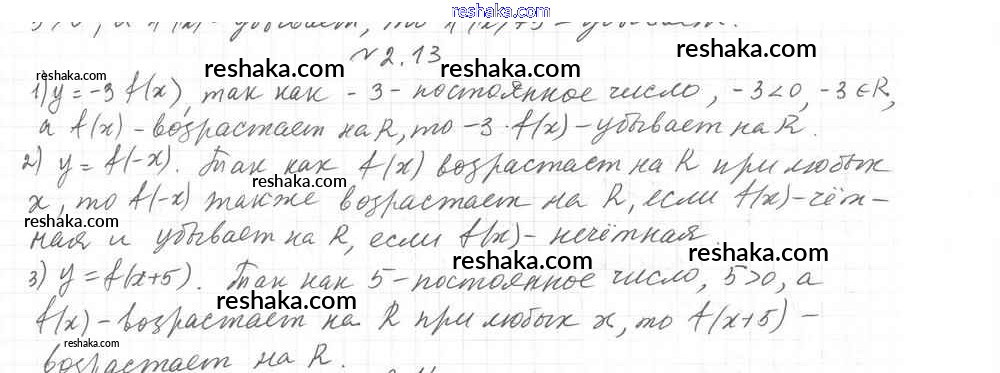 reshaka.com
5>0, а f(x) - убывает, то f(x)+5 - убывает.
№ 2.13
reshaka.com reshaka.com
reshaka.com
1) y = -3 f(x), так как - 3 - постоянное число, -3<0, -3 ∈ R,
reshaka.com reshaka.com
а f(x) - возрастает на R, то -3 · f(x) - убывает на R.
2) y = f(-x). Так как f(x) возрастает на R при любых
reshaka.com
x, то f(-x) также возрастает на R, если f(x) - чёт-
reshaka.com
ная и убывает на R, если f(x) - нечётная.
reshaka.com reshaka.com
3) y = f(x+5). Так как 5 - постоянное число, 5>0, а
reshaka.com
f(x) - возрастает на R при любых x, то f(x+5) -
reshaka.com
возрастает на R.